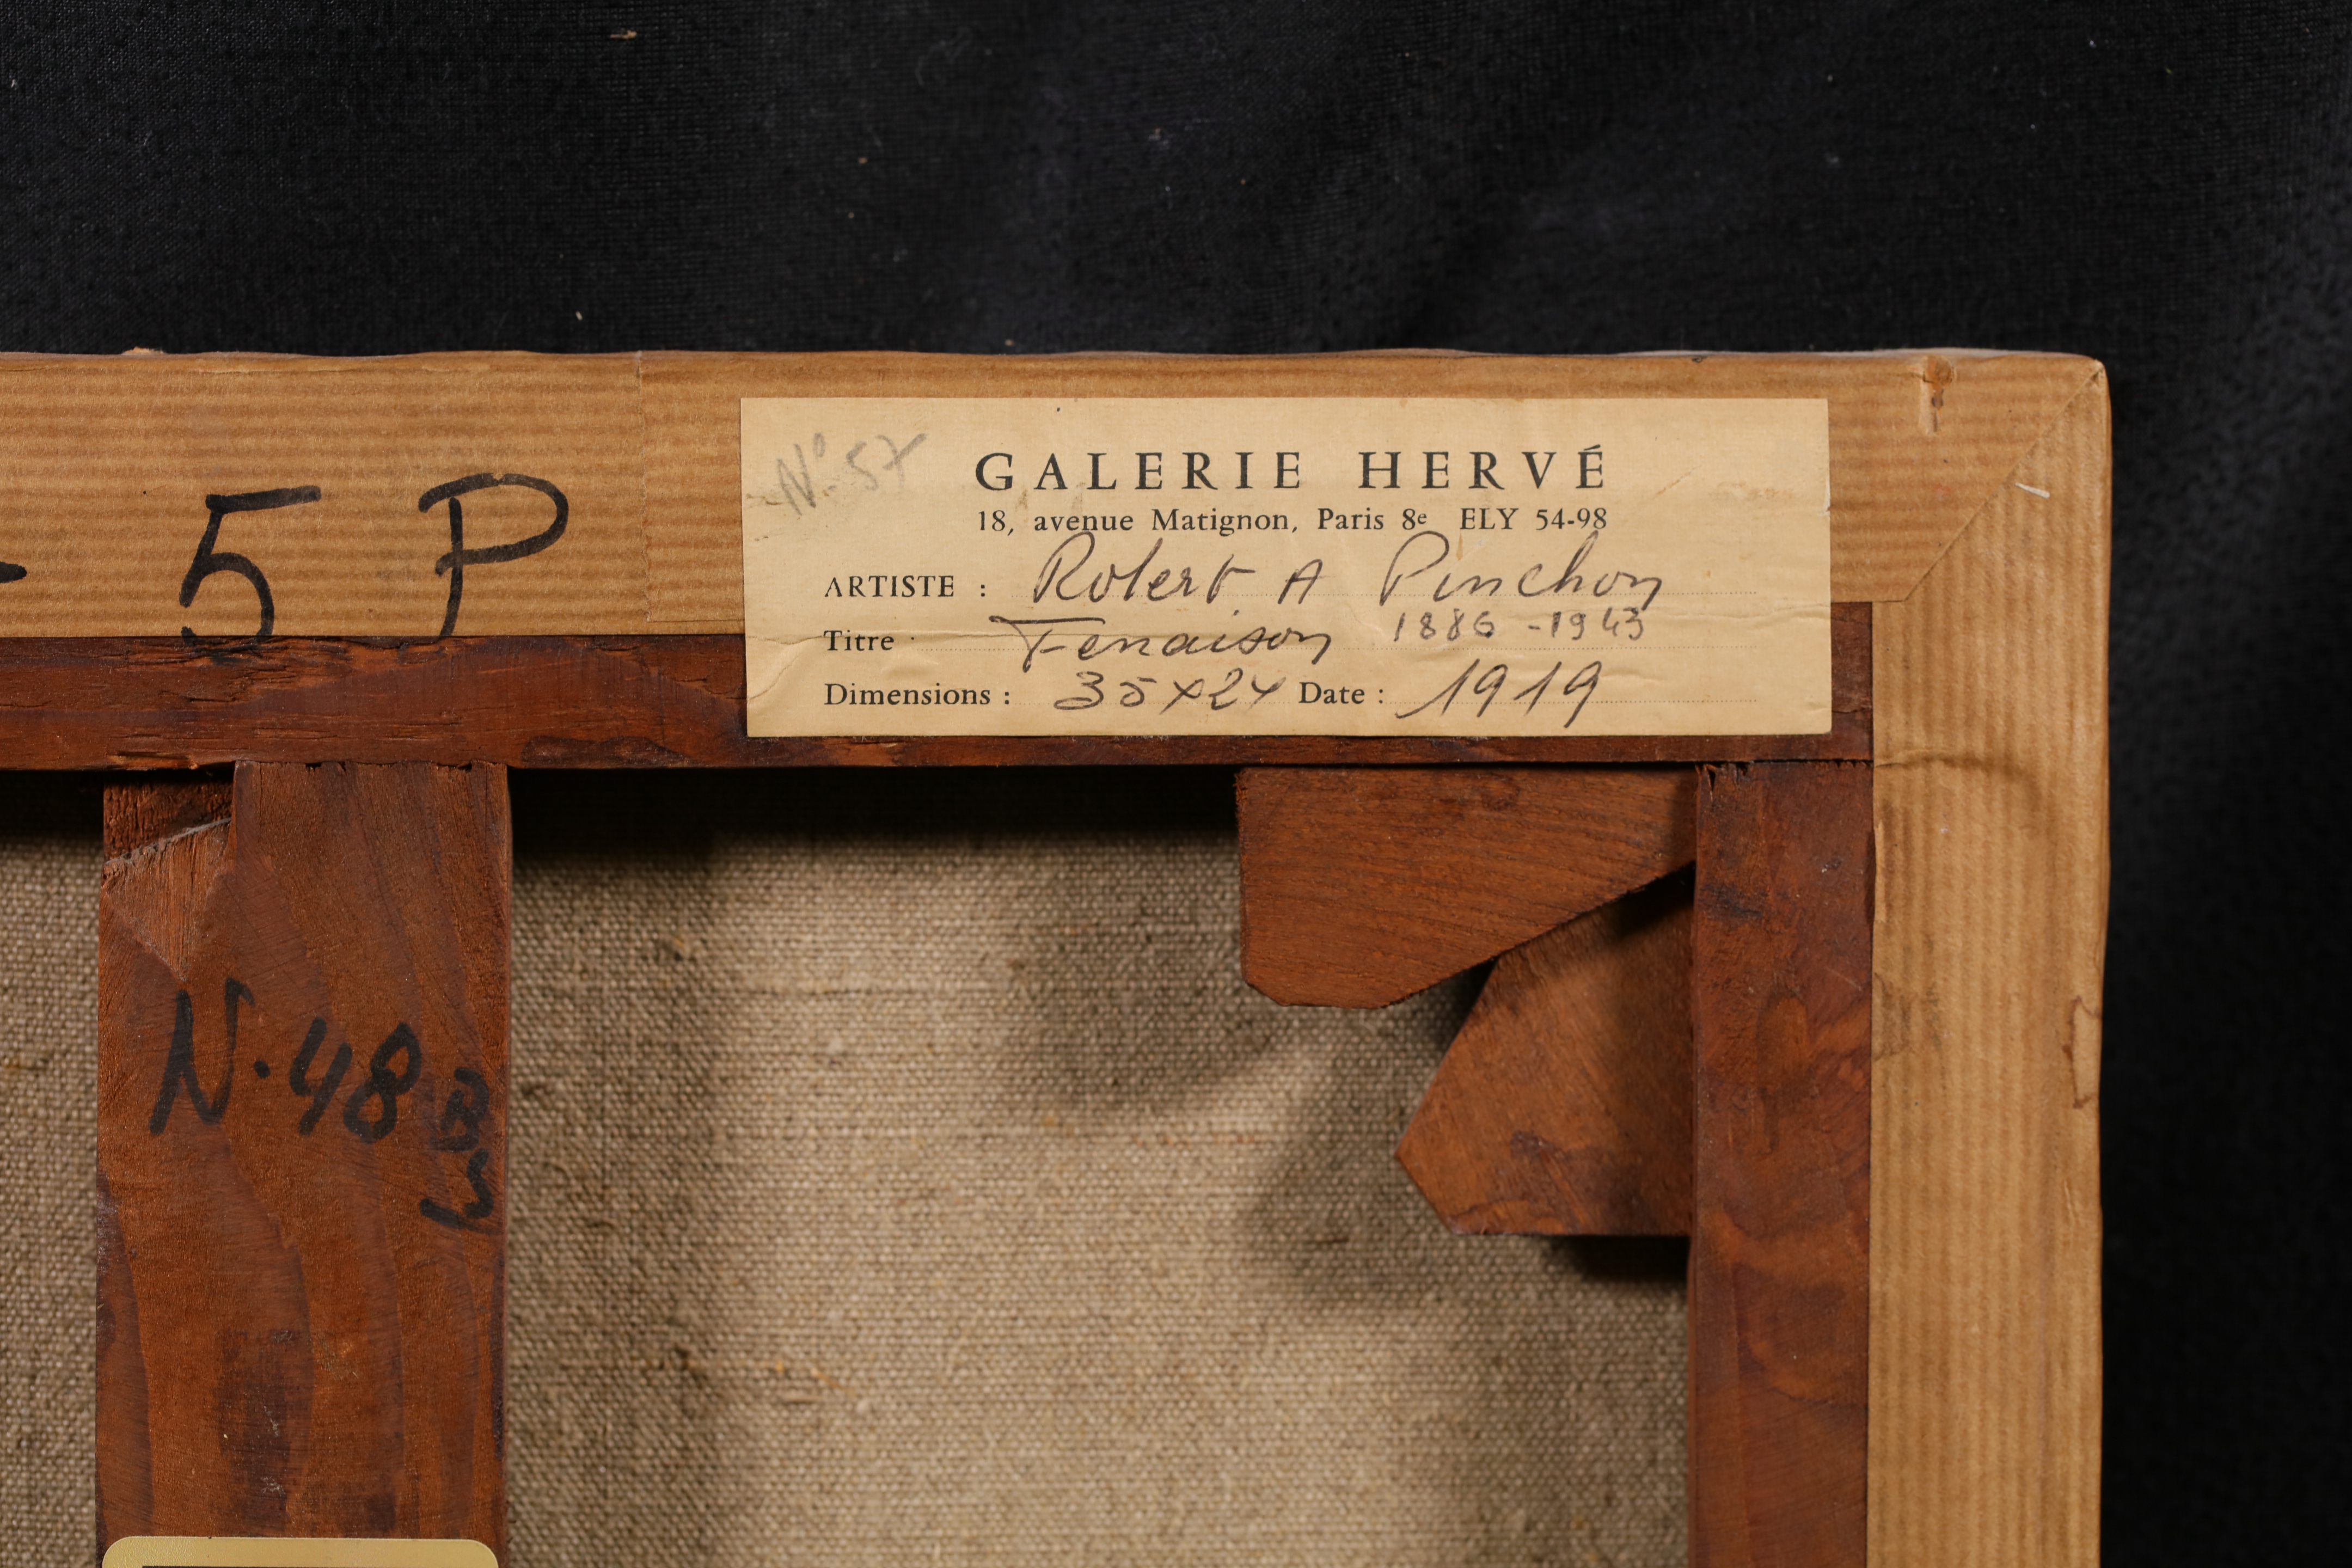 5 P
N° 57
GALERIE HERVÉ
18, avenue Matignon, Paris 8e ELY 54-98
ARTISTE : Robert A Pinchon
1886 - 1943
Titre Fenaison
Dimensions : 35x24 Date : 1919
N. 48 B